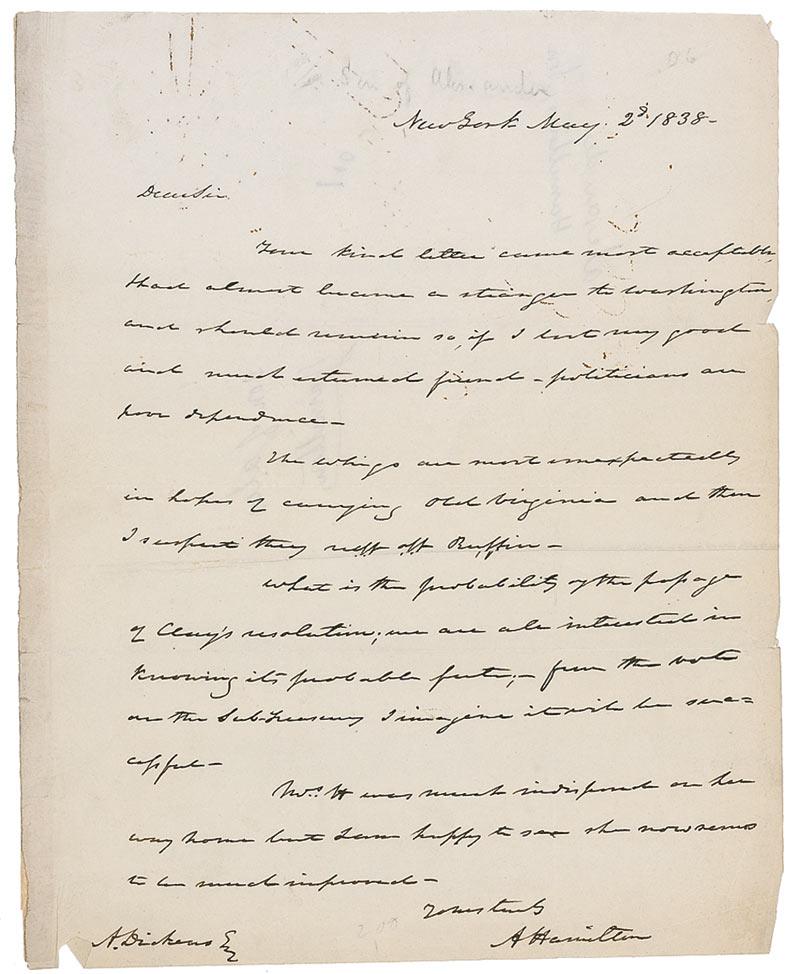 Son of Alexander
New York May. 2d. 1838-
Dear Sir
Your kind letter came most acceptable,
I had almost became a stranger to Washington,
and should remain so, if I lost my good
and much esteemed friend - politicians are
poor dependence -
The Whigs are most unexpectedly
in hopes of carrying Old Virginia and then
I suspect they off Ruffin -
What is the probability of the passage
of Clay's resolution; we are all interested in
knowing its probable fate; - from the vote
on the Sub-Treasury I imagine it will be suc=
cessful -
Mrs. H was much indisposed on her
way home but I am happy to say she now seems
to be much improved -
Yours truly
A. Dickens Esq A Hamilton